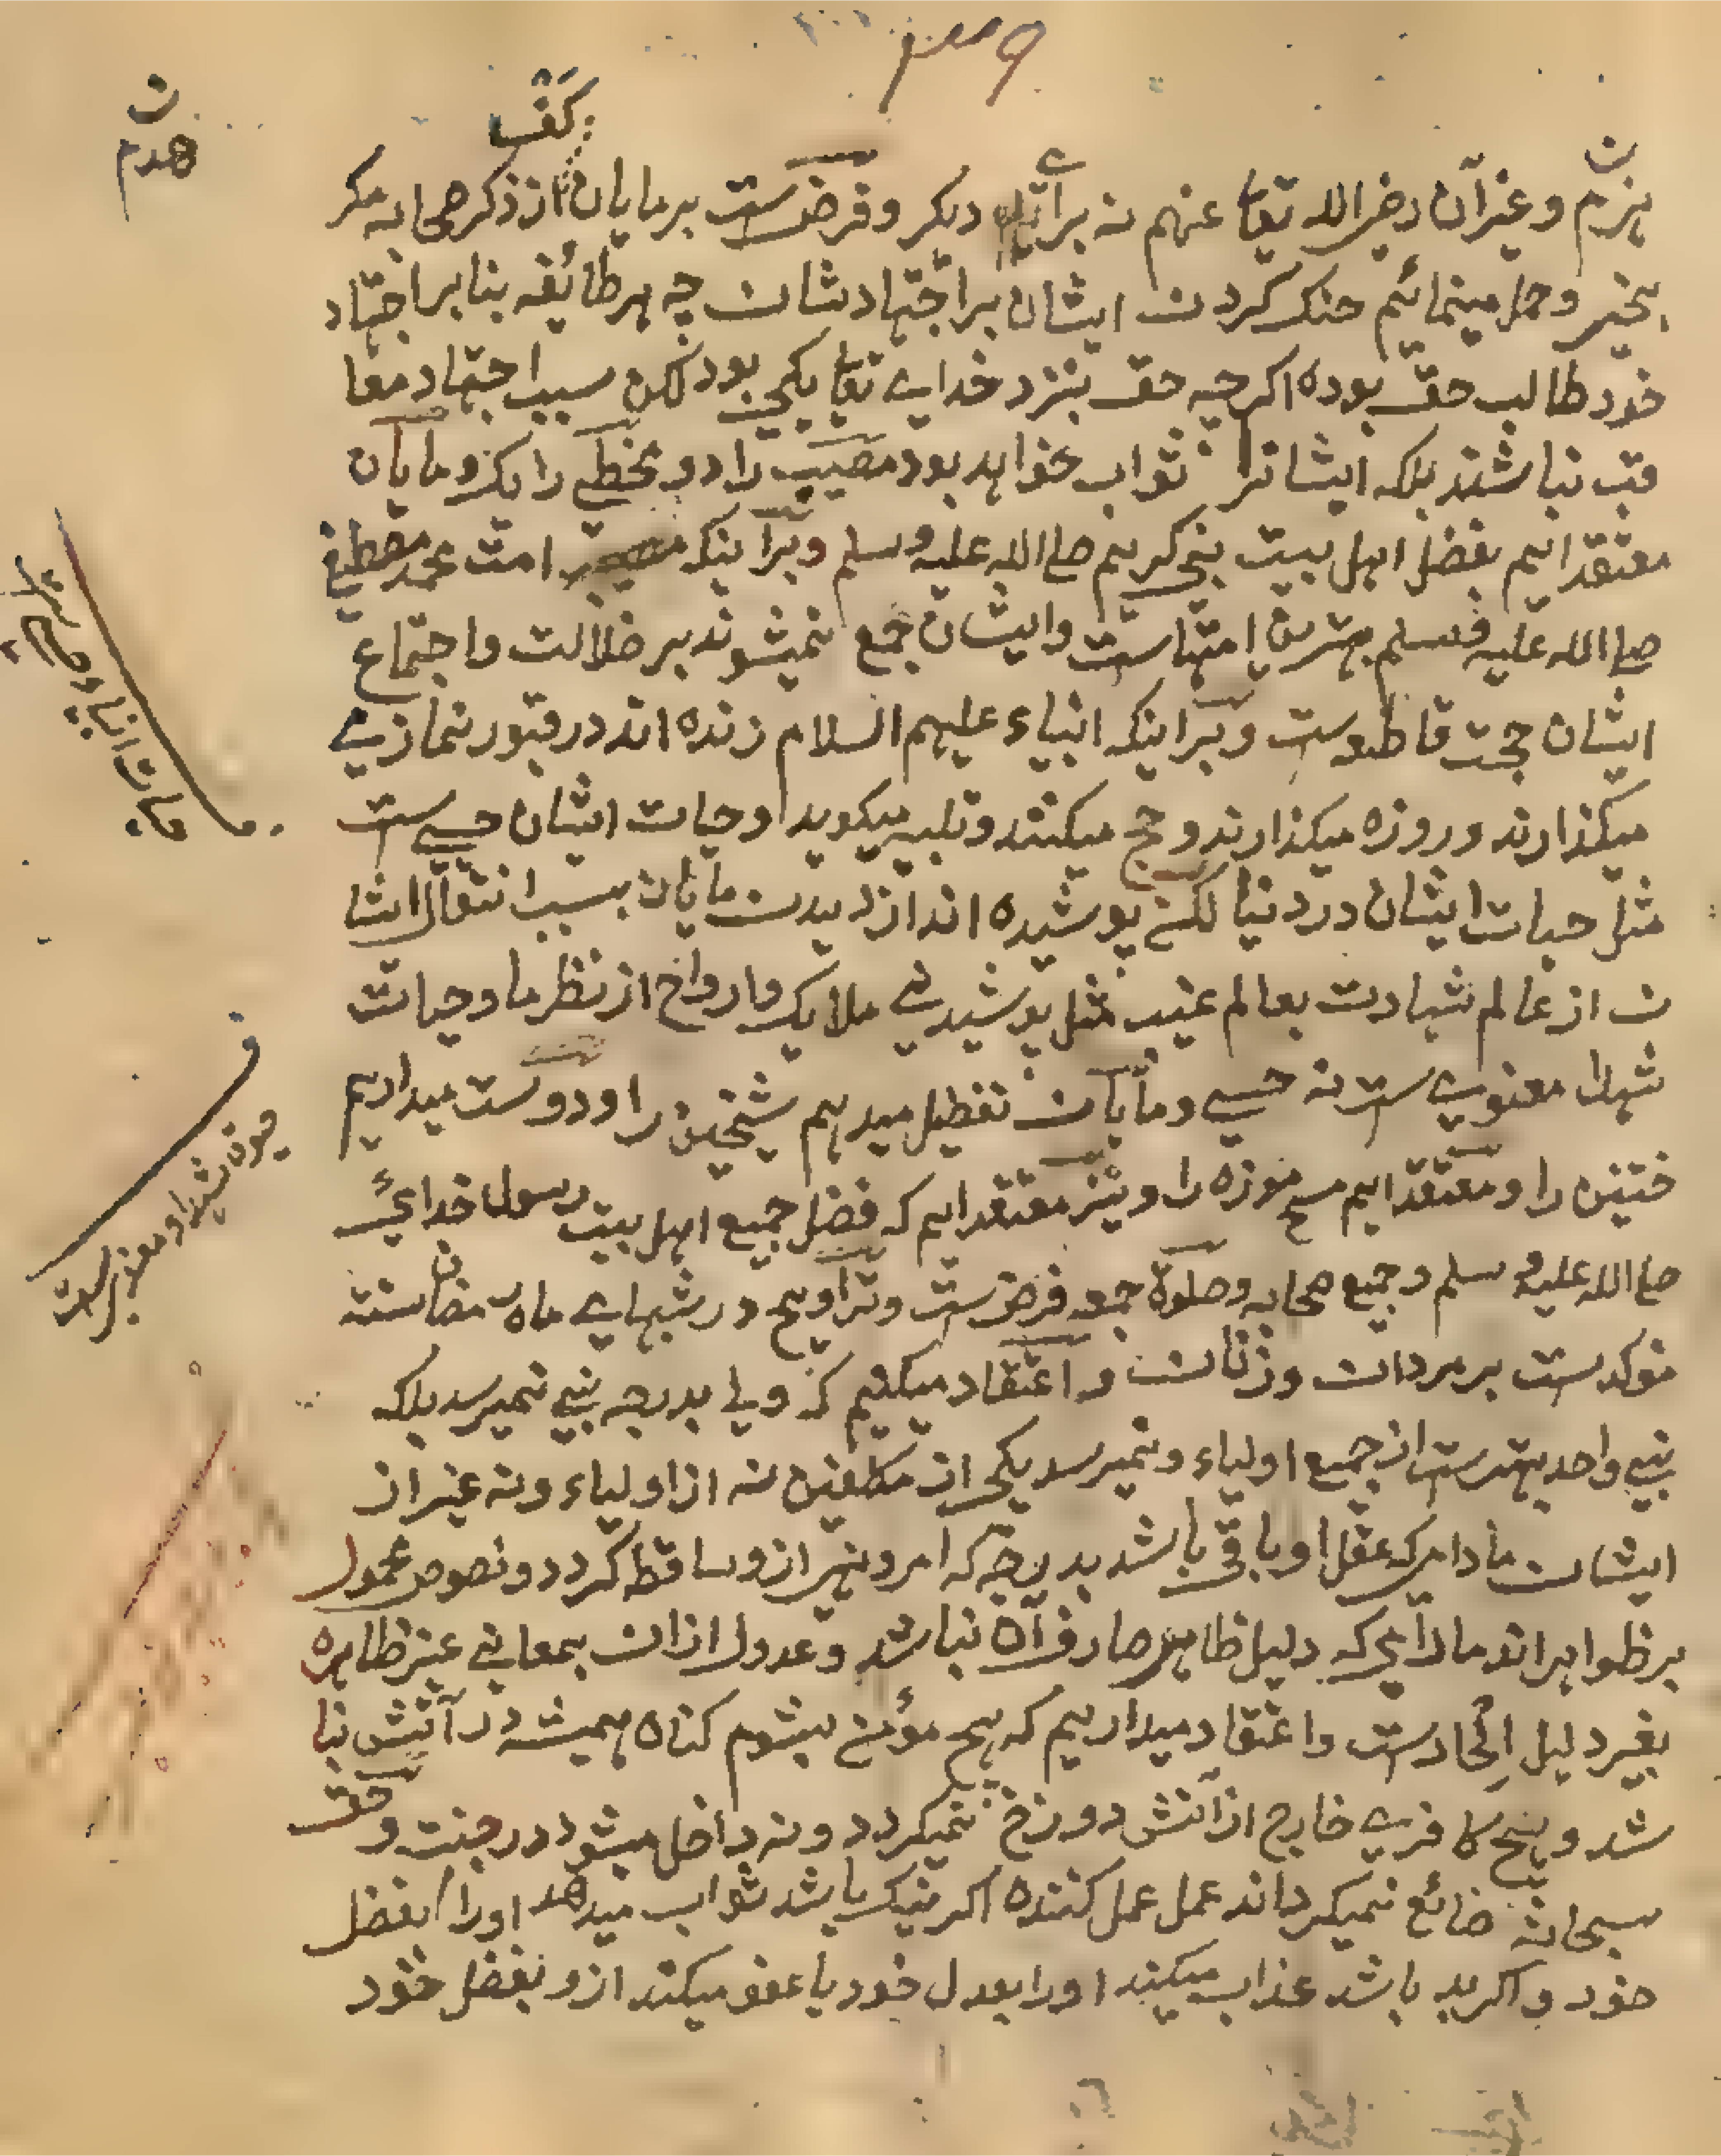 کف
هدم
هزم و غیر آن رضی الله تعا عنهم نه برای دیکر و فرضست بر مایان از ذکر صحابه مکر
بخیر و حمل مینمائیم جنک کردن ایشان بر اجتهاد شان چه هر طائفه بنا بر اجتهاد
خود طالب حق بوده اکرچه حق بنزد خدای تعا یکی بود لکن سبب اجتهاد معا
قب نباشند بلکه ایشانرا ثواب خواهد بود مصیب را دو و مخطی را یک و مایان
معتقد ایم بفضل اهل بیت نبی کریم صلی الله علیه وسلم و بر اینکه امت محمد مصطفی
صلی الله علیه وسلم بهترین امتهاست و ایشان جمع نمیشوند بر ضلالت و اجتماع
ایشان حجت قاطعه ست و بر اینکه انبیاء علیهم السلام زنده اند در قبور نماز می
میکذارند و روزه میکذارند و حج میکنند و تلبیه میکویند و حیات ایشان حسی ست
مثل حیات ایشان در دنیا لکن پوشیده اند از دیدن مایان بسبب انتقال ایشا
ن از عالم شهادت بعالم غیب مثل پوشیدنی ملایک و ارواح از نظر ما و حیات
شهدا معنوی ست نه حسی و مایان تفضیل میدهم شیخین را و دوست میداریم
ختنین را و معتقد ایم مسح موزه را و نیز معتقد ایم که فضل جمیع اهل بیت رسول خدای
صلی الله علیه وسلم و جمیع صحابه و صلوة جمعه فرضست و تراویح در شبهای ماه رمضان سنته
موکد ست بر مردان و زنان و اعتقاد میکنیم که ولی بدرجه نبی نمیرسد بلکه
نبی واحد بهتر ست از جمیع اولیاء و نمیرسد یکی از مکلفین نه از اولیاء و نه غیر از
ایشان مادامیکه عقل او باقی باشد بدرجه که امر و نهی از و ساقط کردد و نصوص محمول
بر ظواهر اند مادامی که دلیل ظاهر صارف آن نباشد و عدول از ان بمعانی غیر ظاهره
بغیر دلیل الحادست و اعتقاد میداریم که هیچ مؤمن بشوم کناه همیشه در آتش نبا
شد و هیچ کافری خارج از آتش دوزخ نمیکردد و نه داخل میشود در جنت و حق
سبحانه ضائع نمیکرداند عمل عمل کننده اکر نیک باشد ثواب میدهد او را بفضل
خود و اکر بد باشد عذاب میکند او را بعدل خود یا عفو میکند از و بفضل خود
حیات انبیاء